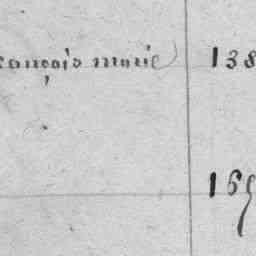 rançois marie 138
169